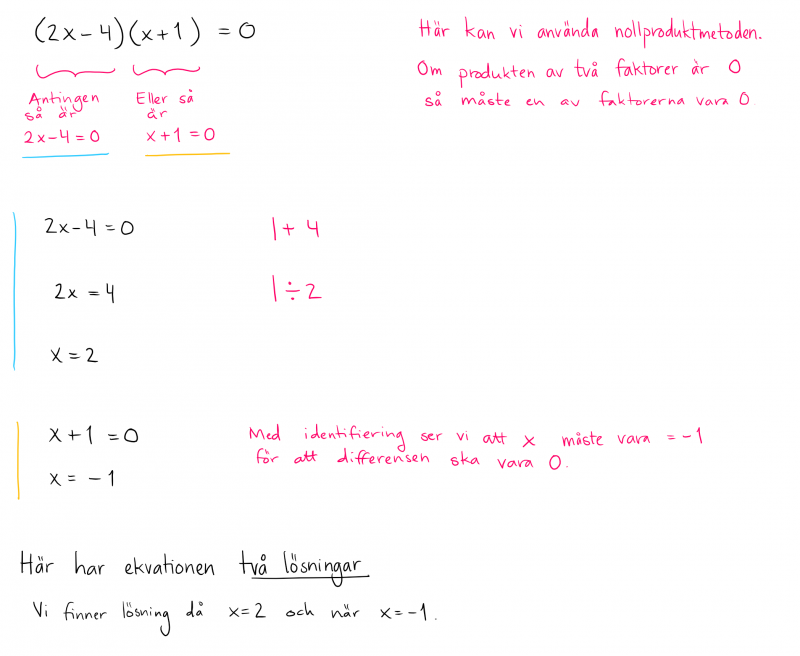 (2x-4)(x+1) = 0
Här kan vi använda nollproduktmetoden.
Om produkten av två faktorer är 0
så måste en av faktorerna vara 0
Antingen så är
2x-4=0
Eller så är
x+1=0
2x-4=0 |+ 4
2x = 4 |÷2
x = 2
x+1 =0
x = -1
Med identifiering ser vi att x måste vara = -1
för att differensen ska vara 0.
Här har ekvationen två lösningar
Vi finner lösning då x=2 och när x=-1.